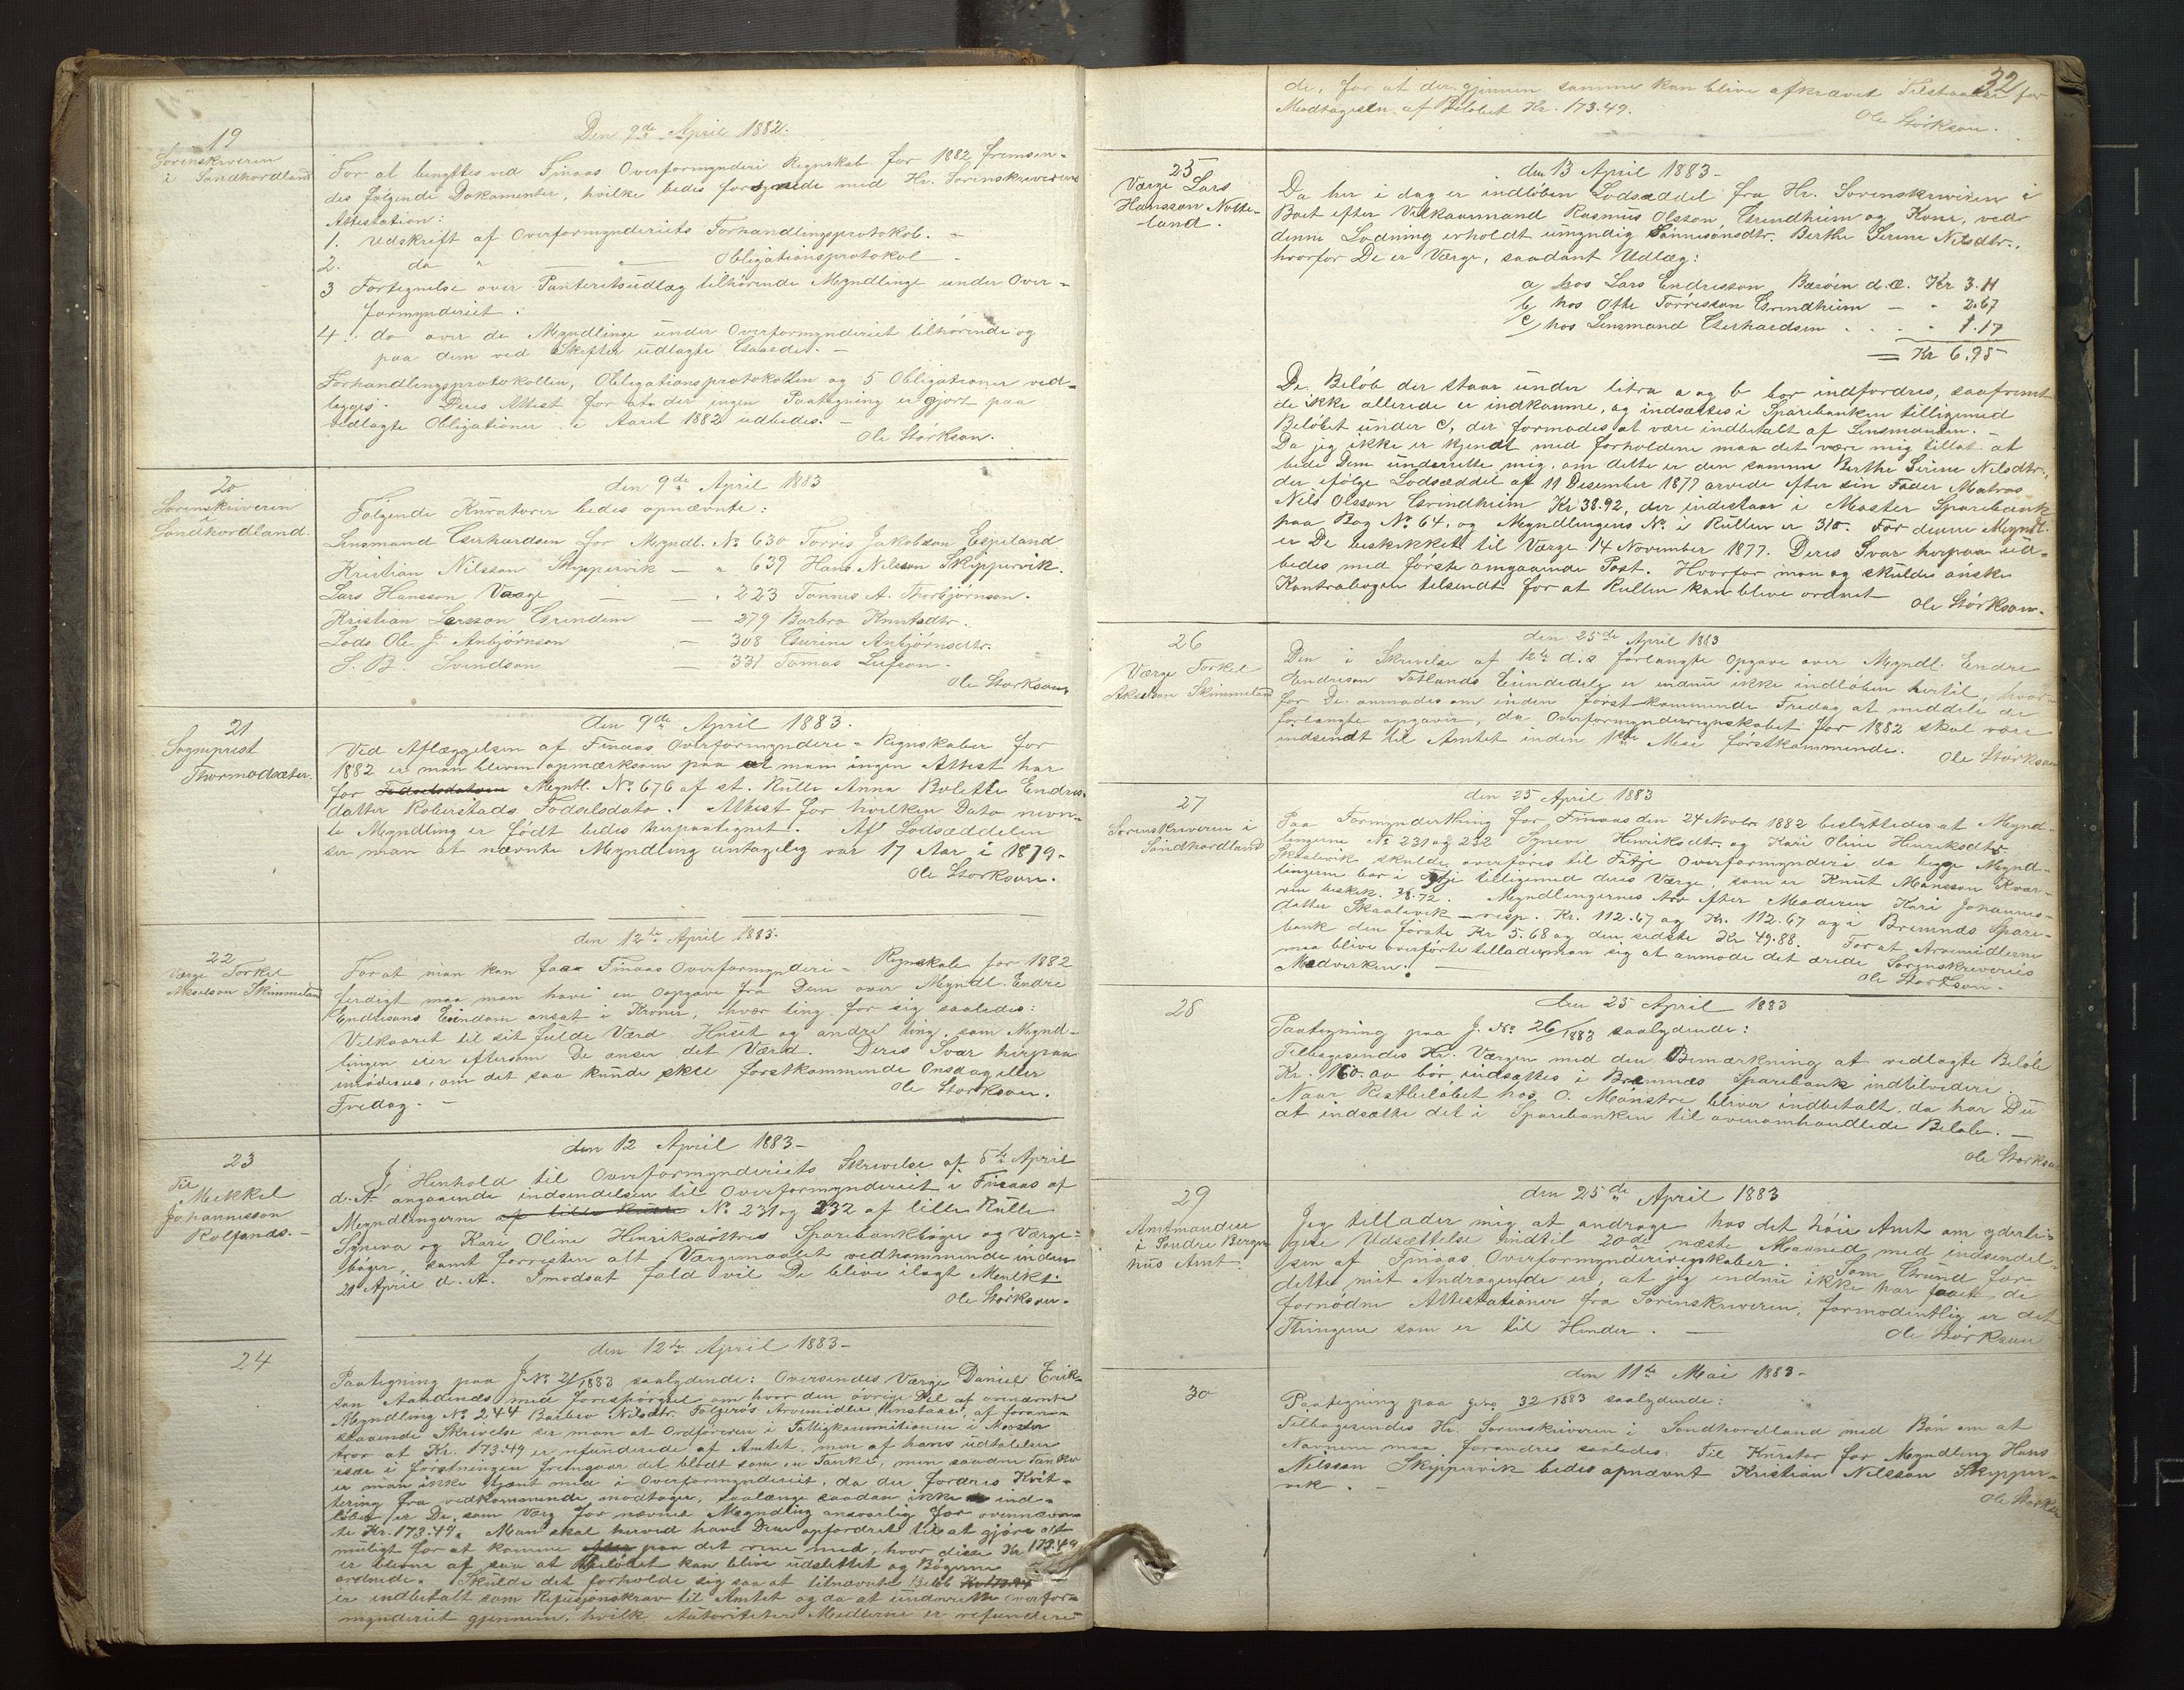 19
Sorenskriveren
i Søndhordland
Den 9de April 1882.
For at benyttes ved Finaas Overformynderi Regnskab for 1882 fremsen-
des følgende Dokumenter, hvilke bedes forsynede med Hr. Sorenskriverens
Attestation:
1. Udskrift af Overformynderiets Forhandlingsprotokol. -
2. do " Obligationsprotokol -
3 Fortegnelse over Panteretsudlæg tilhørende Myndlinge under Over-
formynderiet.
4. do over de Myndlinge under Overformynderiet tilhørende og
paa dem ved Skifter udlagte Gaarde. -
Forhandlingsprotokollen, Obligationsprotokollen og 5 Obligationer ved-
lægges. Deres Attest for at der ingen Paategning er gjort paa
vedlagte Obligationer i Aaret 1882 udbedes. -
Ole Størkson.
20
Sorenskriveren
i
Søndhordland.
den 9de April 1883
Følgende Kuratorer bedes opnævnte:
Lensmand Gerhardsen for Myndl. No 630 Torris Jakobson Espeland
Kristian Nilsson Skippervik — " 639 Hans Nilsson Skippervik.
Lars Hansson Vaage — — " 223 Tønnis A. Thorbjørnson.
Kristian Larsson Grindeim — 279 Barbro Knutsdtr.
Lods Ole J. Anbjørnson — 308 Gurine Anbjørnsdtr.
S. B. Svendson — 331 Tomas Leifson.
Ole Størkson
21
Sogneprest
Thormodsæter.
den 9de April 1883.
Ved Aflæggelsen af Finaas Overformynderi-Regnskaber for
1882 er man bleven opmærksom paa at man ingen Attest har
for Fødselsdatoen Myndl. No 676 af st. Rulle Anna Bolette Endres-
datter Roberstads Fødselsdato. Attest for hvilken Dato nævn-
te Myndling er født bedes herpaategnet. Af Lodsæddelen
ser man at nævnte Myndling antagelig var 17 Aar i 1879.
Ole Størkson.
22
Værge Torkel
Akselson Skimmeland
den 12te April 1883.
For at man kan faa Finaas Overformynderi-Regnskab for 1882
færdigt maa man have en Opgave fra Dem over Myndl. Endre
Endresons Eiendom ansat i Kroner, hvær ting for sig saaledes:
Vilkaaret til sit fulde Værd Huset og andre ting, som Mynd-
lingen eier eftersom De anser det Værd. Deres Svar herpaa
imødesees, om det saa kunde skee førstkommende Onsdag eller
Fredag. -
Ole Størkson.
23
Til
Mekkel
Johannesson
Kolfands. -
den 12 April 1883 -
I Henhold til Overformynderiets Skrivelse af 5te April
d. A. angaaende indsendelsen til Overformynderiet i Finaas af
Myndlingerne af lille Rulle No 231 og 232 af lille Rulle
Syneva og Kari Oline Henriksdøttres Sparebankbøger og Værge-
bøger, samt forresten alt Værgemaalet vedkommende inden
21 April d. A. I modsat fald vil De blive ilagt Menlkt.
Ole Størkson.
24
den 12te April 1883 -
Paategning paa J No 21/1883 saalydende: Oversendes Værge Daniel Erik-
son Aadnanæs med Forespørgsel om hvor den øvrige Del af ovennævnte
Myndling No 244 Barbro Nilsdtr. Folgerøs Arvemidler henstaar, af foran-
staaende Skrivelse ser man at Ordføreren i Fattigkommisionen i Moster
tror at Kr. 173.49 er refunderede af Amtet, men af hans udtalelser
især i førstningen fremgaar det blodt som en Tanke, men saadan Tanke
er man ikke tjænt med i Overformynderiet, da der fordres Kvit-
tering fra vedkommende modtager, saalænge saadan ikke er ind-
løben er De, som Værge for nævnte Myndling ansvarlig for ovennævn-
te Kr. 173.49. Man skal herved have Dem opfordret til at gjøre alt
muligt for at komme efter paa det rene med, hvor disse Kr 173.49
er blevne af saa at Beløbet kan blive udslettet og Bøgerne
ordnede. Skulde det forholde sig saa at titnævnte Beløb Kr 173.94
er indbetalt som Refusjonskrav til Amtet og da at underrette Overfor-
mynderiet gjennem hvilke Autoriteter Medlerne er refundere-
32
de, for at der gjennem samme kan blive afkrævet Tilstaaelse for
Modtagelsen af Beløbet Kr. 173.49.
Ole Størkson.
25
Værge Lars
Hansson Notte-
land.
den 13 April 1883 -
Da her i dag er indløben Lodsæddel fra Hr. Sorenskriveren i
Boet efter Vilkaarmand Rasmus Olsson Grindheim og Kone, ved
denne Lodning erholdt umyndig Sønnesønsdtr. Berthe Serine Nilsdtr.,
hvorfor De er Værge, saadant Udlæg:
a, hos Lars Endresson Børøen d. æ. Kr 3.11
b, hos Otte Torrisson Grindheim — " 2.67
c, hos Lensmand Gerhardsen . . . " 1.17
= Kr 6.95
De Beløb der staar under litra a og b bør indfordres, saafremt
de ikke allerede er indkomne, og indsættes i Sparebanken tilligemed
Beløbet under c, der formodes at være indbetalt af Lensmanden. -
Da jeg ikke er kjendt med forholdene maa det være mig tillat at
bede Dem underrette mig, om dette er den samme Berthe Serine Nilsdtr.,
der ifølge Lodsæddel af 11 Desember 1877 arvede efter sin Fader Matros
Nils Olsson Grindheim Kr 38.92, der indestaar i Moster Sparebank
paa Bog No 64, og Myndlingens No i Rullen er 310. For denne Myndl.
er De beskikket til Værge 14 November 1877. Deres Svar herpaa ud-
bedes med første omgaaende Post. Hvorfor man og skulde ønske
Kontrabogen tilsendt for at Rullen kan blive ordnet
Ole Størkson.
26
Værge Torkel
Akselson Skimmeland
den 25de April 1883
Den i Skrivelse af 12te d. s. forlangte Opgave over Myndl. Endre
Endreson Totlands Eiendele er endnu ikke indløben hertil, hvor-
for De anmodes om inden først kommende Fredag at meddele de
forlangte opgaver, da Overformynderregnskabet for 1882 skal være
indsendt til Amtet inden 1ste Mai førstkommende.
Ole Størkson
27
Sorenskriveren i
Søndhordland
den 25 April 1883
Paa Formynderthing for Finaas den 24 Novbr. 1882 besluttedes at Mynd-
lingerne No 231 og 232 Syneve Henriksdtr. og Kari Oline Henriksdtr.
Skaalevik skulde overføres til Fitje Overformynderi, da begge Mynd-
lingerne bor i Fitje tilligemed deres Værge, som er Knut Mònsson Kvar-
ven beskik. 3/8.72. Myndlingernes Arv efter Moderen Kari Johannes-
datter Skaalevik — resp. Kr. 112.67 og Kr. 112.67 og i Bremnæs Spare-
bank den første Kr 5.68 og den sidste Kr 49.88. For at Arvemidlerne
maa blive overførte tillader man sig at anmode det ærede Sorenskriveries
Medverken! -
Ole Størkson.
28
den 25 April 1883
Paategning paa J. No 26/1883 saalydende:
Tilbagesendes Hr. Værgen med den Bemærkning at vedlagte Beløb
Kr. 160.00 bør indsættes i Bremnæs Sparebank indtilvedere
Naar Restbeløbet hos O. Mònstre bliver indbetalt, da har Du
at indsætte det i Sparebanken til ovenomhandlede Beløb. -
Ole Størkson
29
Amtmanden
i Søndre Bergen-
hus Amt.
den 25de April 1883
Jeg tillader mig at andrage hos det høie Amt om yderli-
gere Udsættelse indtil 20de næste Maaned med indsendel-
sen af Finaas Overformynderiregnskaber. Som Grund for
dette mit Andragende er, at jeg endnu ikke har faaet de
fornødne Attestationer fra Sorenskriveren, formodentlig er det
Thingene som er til Hinder. -
Ole Størkson
30
den 11te Mai 1883 -
Paategning paa 32/1883 saalydende:
Tilbagesendes Hr. Sorenskriveren i Søndhordland med Bøn om at
Navnene maa forandres saaledes: Til Kurator for Myndling Hans
Nilsson Skippervik bedes opnævnt Kristian Nilsson Skipper-
vik. -
Ole Størkson